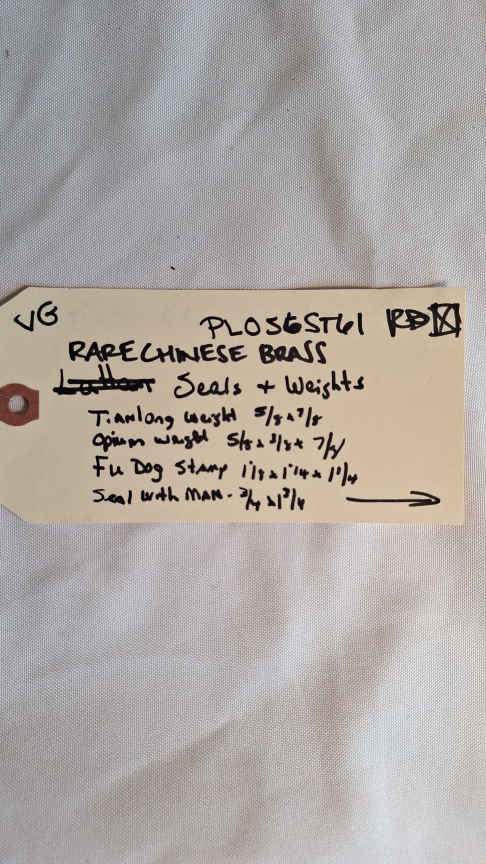 VG PL056ST61 RD
RARE CHINESE BRASS
Seals + Weights
Tianlong weight 5/8 x 7/8
Opium weight 5/8 x 3/8 x 7/8
Fu Dog Stamp 1 1/8 x 1 1/4 x 1 1/4
Seal with MAN - 3/4 x 1 3/4